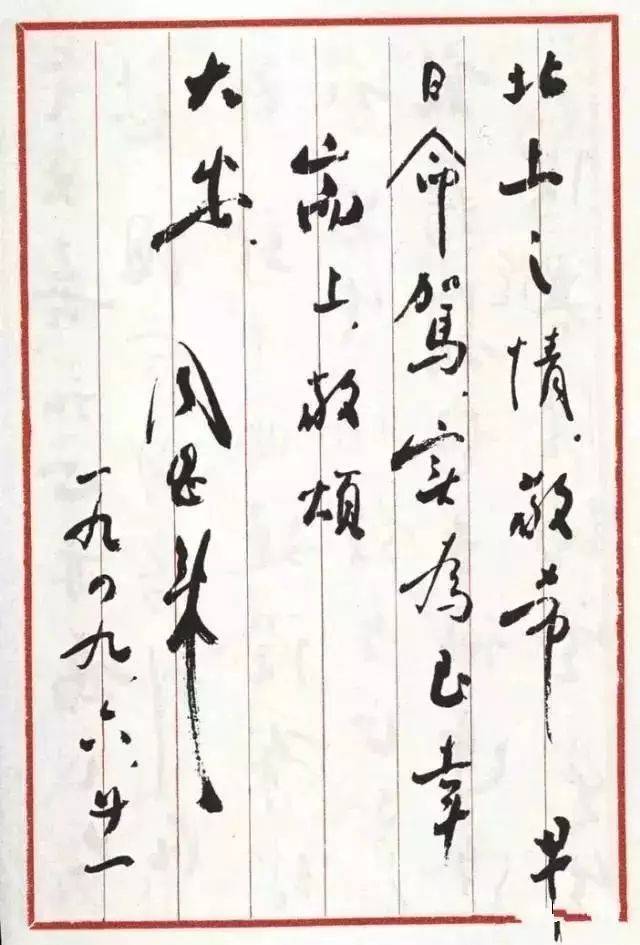 北上之情.敬希早
日命駕.实為至幸
耑上.敬頌
大安. 周恩来
一九四九.六.廿一